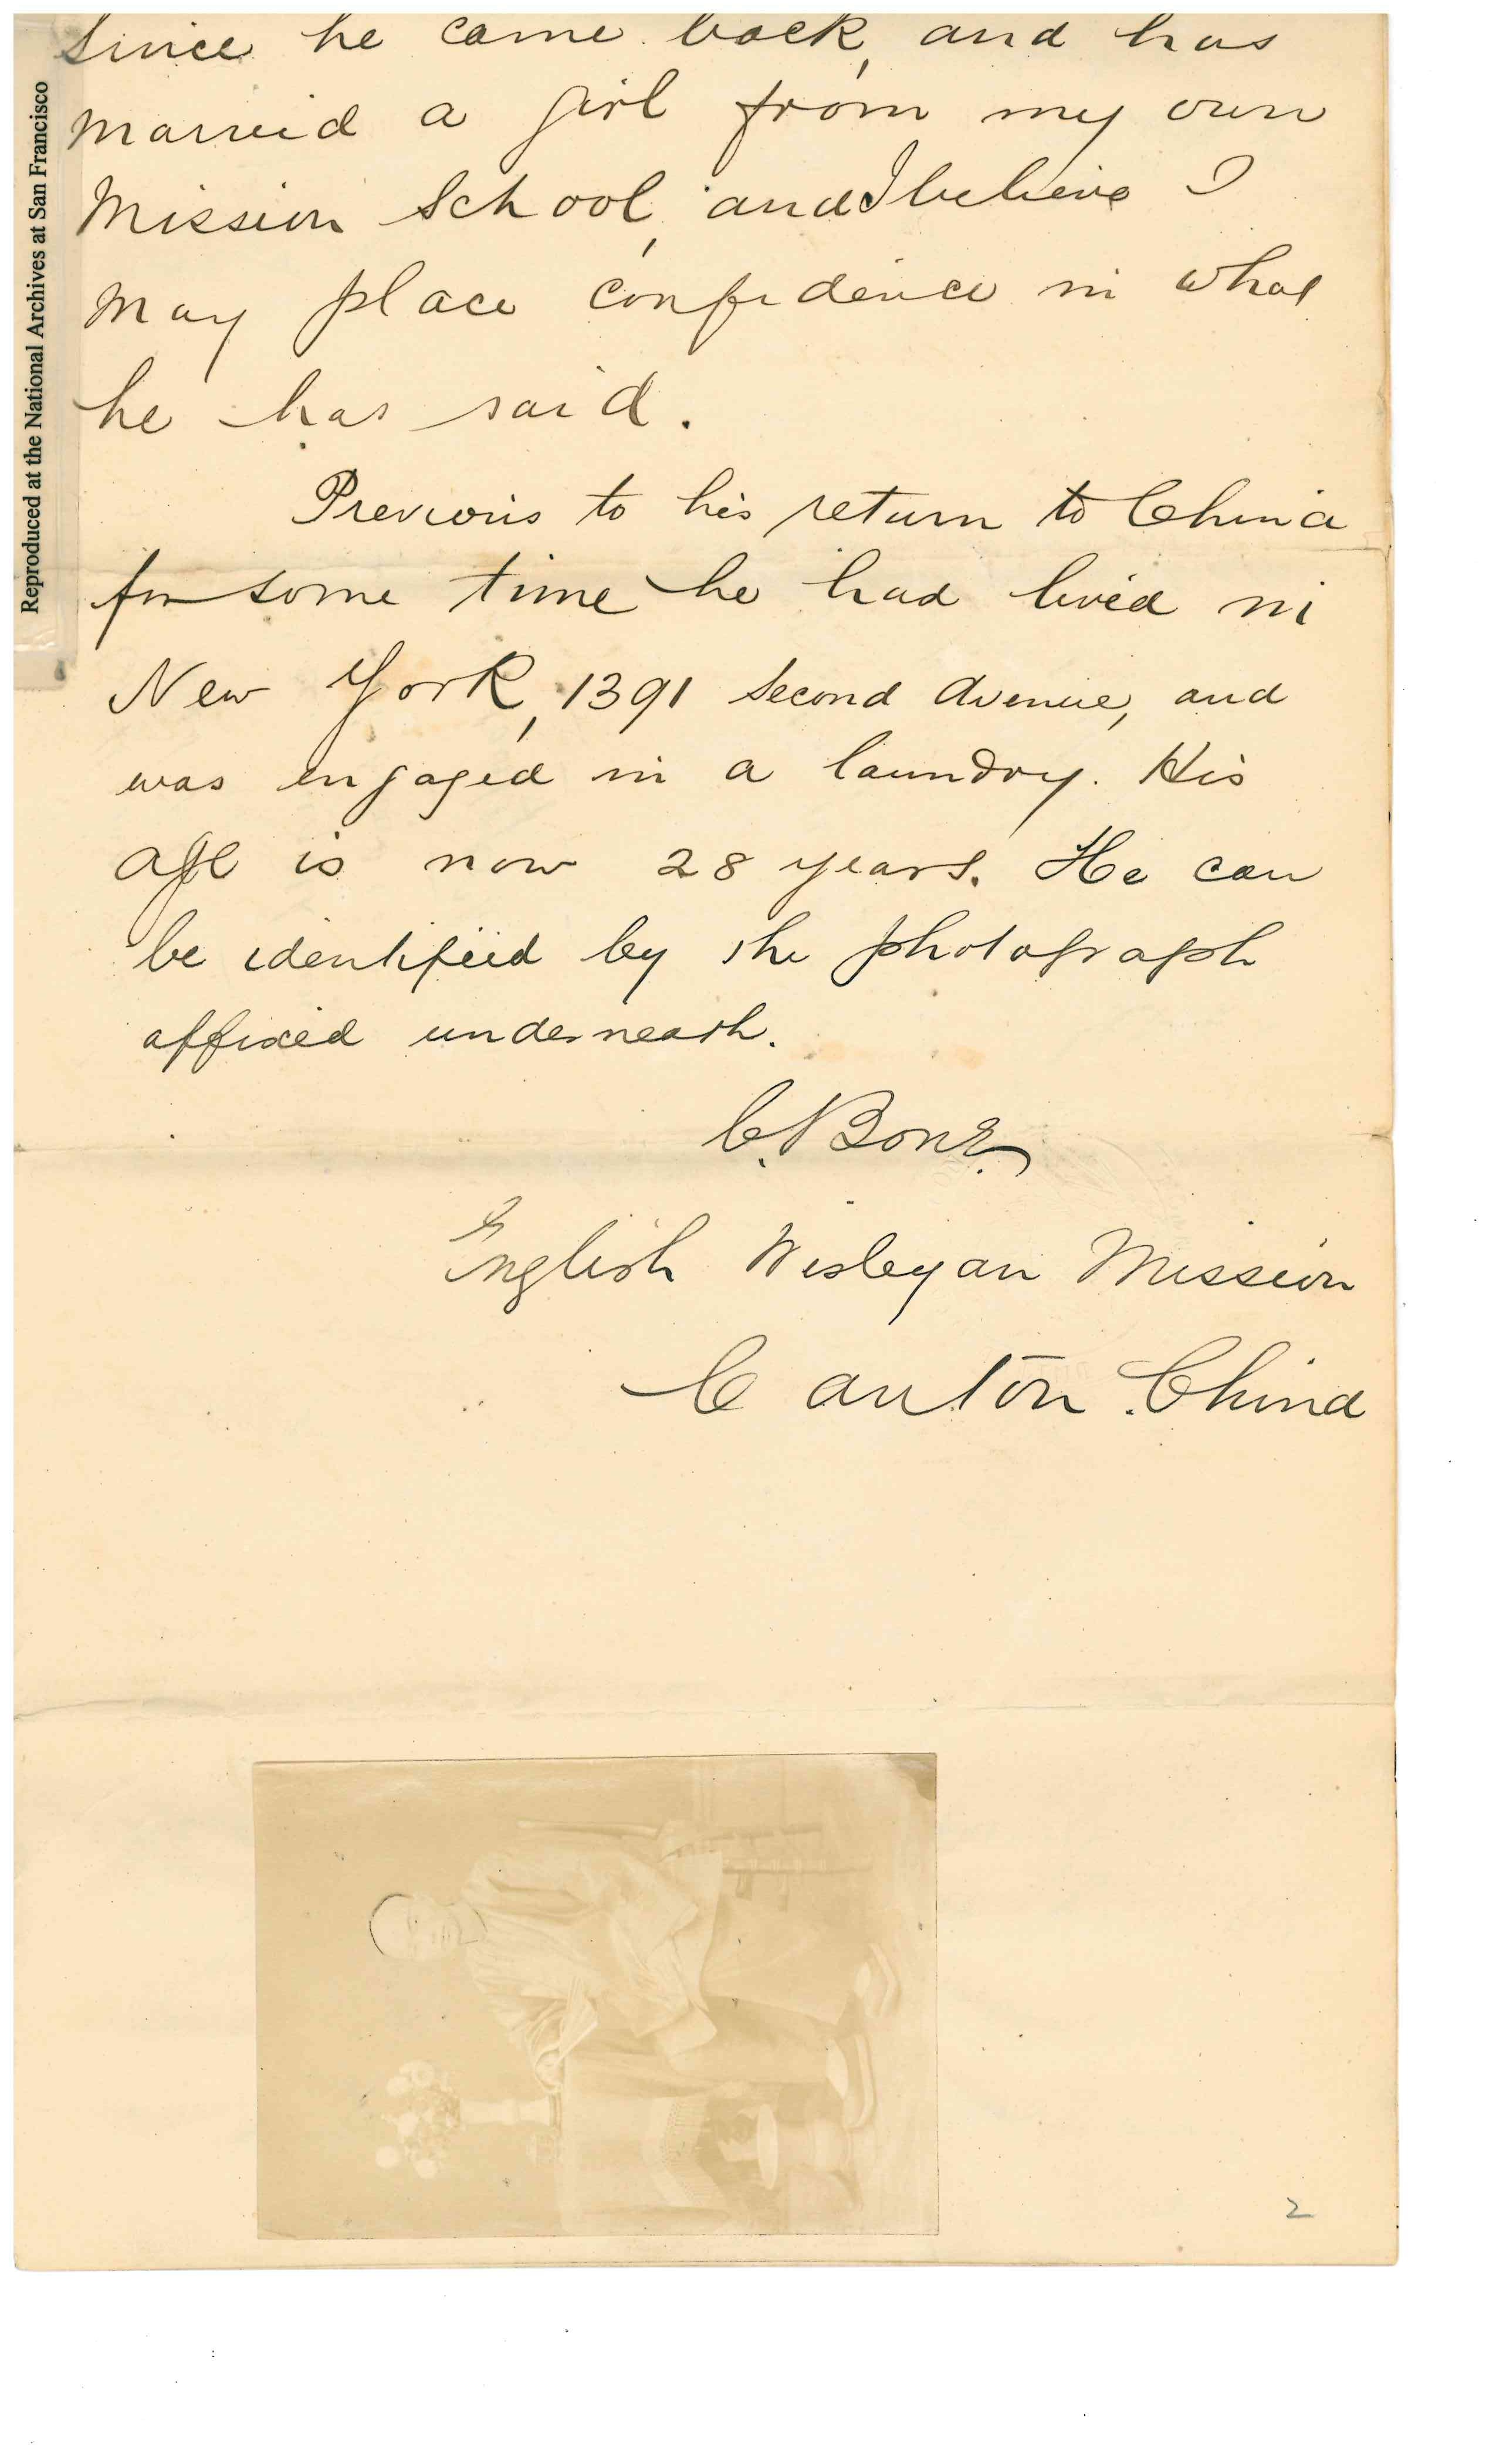 since he came back, and has
married a girl from my own
Mission School, and I believe I
may place confidence in what
he has said.
Previous to his return to China
for some time he had lived in
New York, 1391 Second Avenue, and
was engaged in a laundry. His
age is now 28 years. He can
be identified by the photograph
affixed underneath.
C. Bone.
English Wesleyan Mission
Canton. China
2
Reproduced at the National Archives at San Francisco